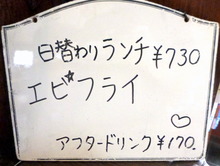 日替わりランチ ¥730
エビフライ
アフタードリンク ¥170